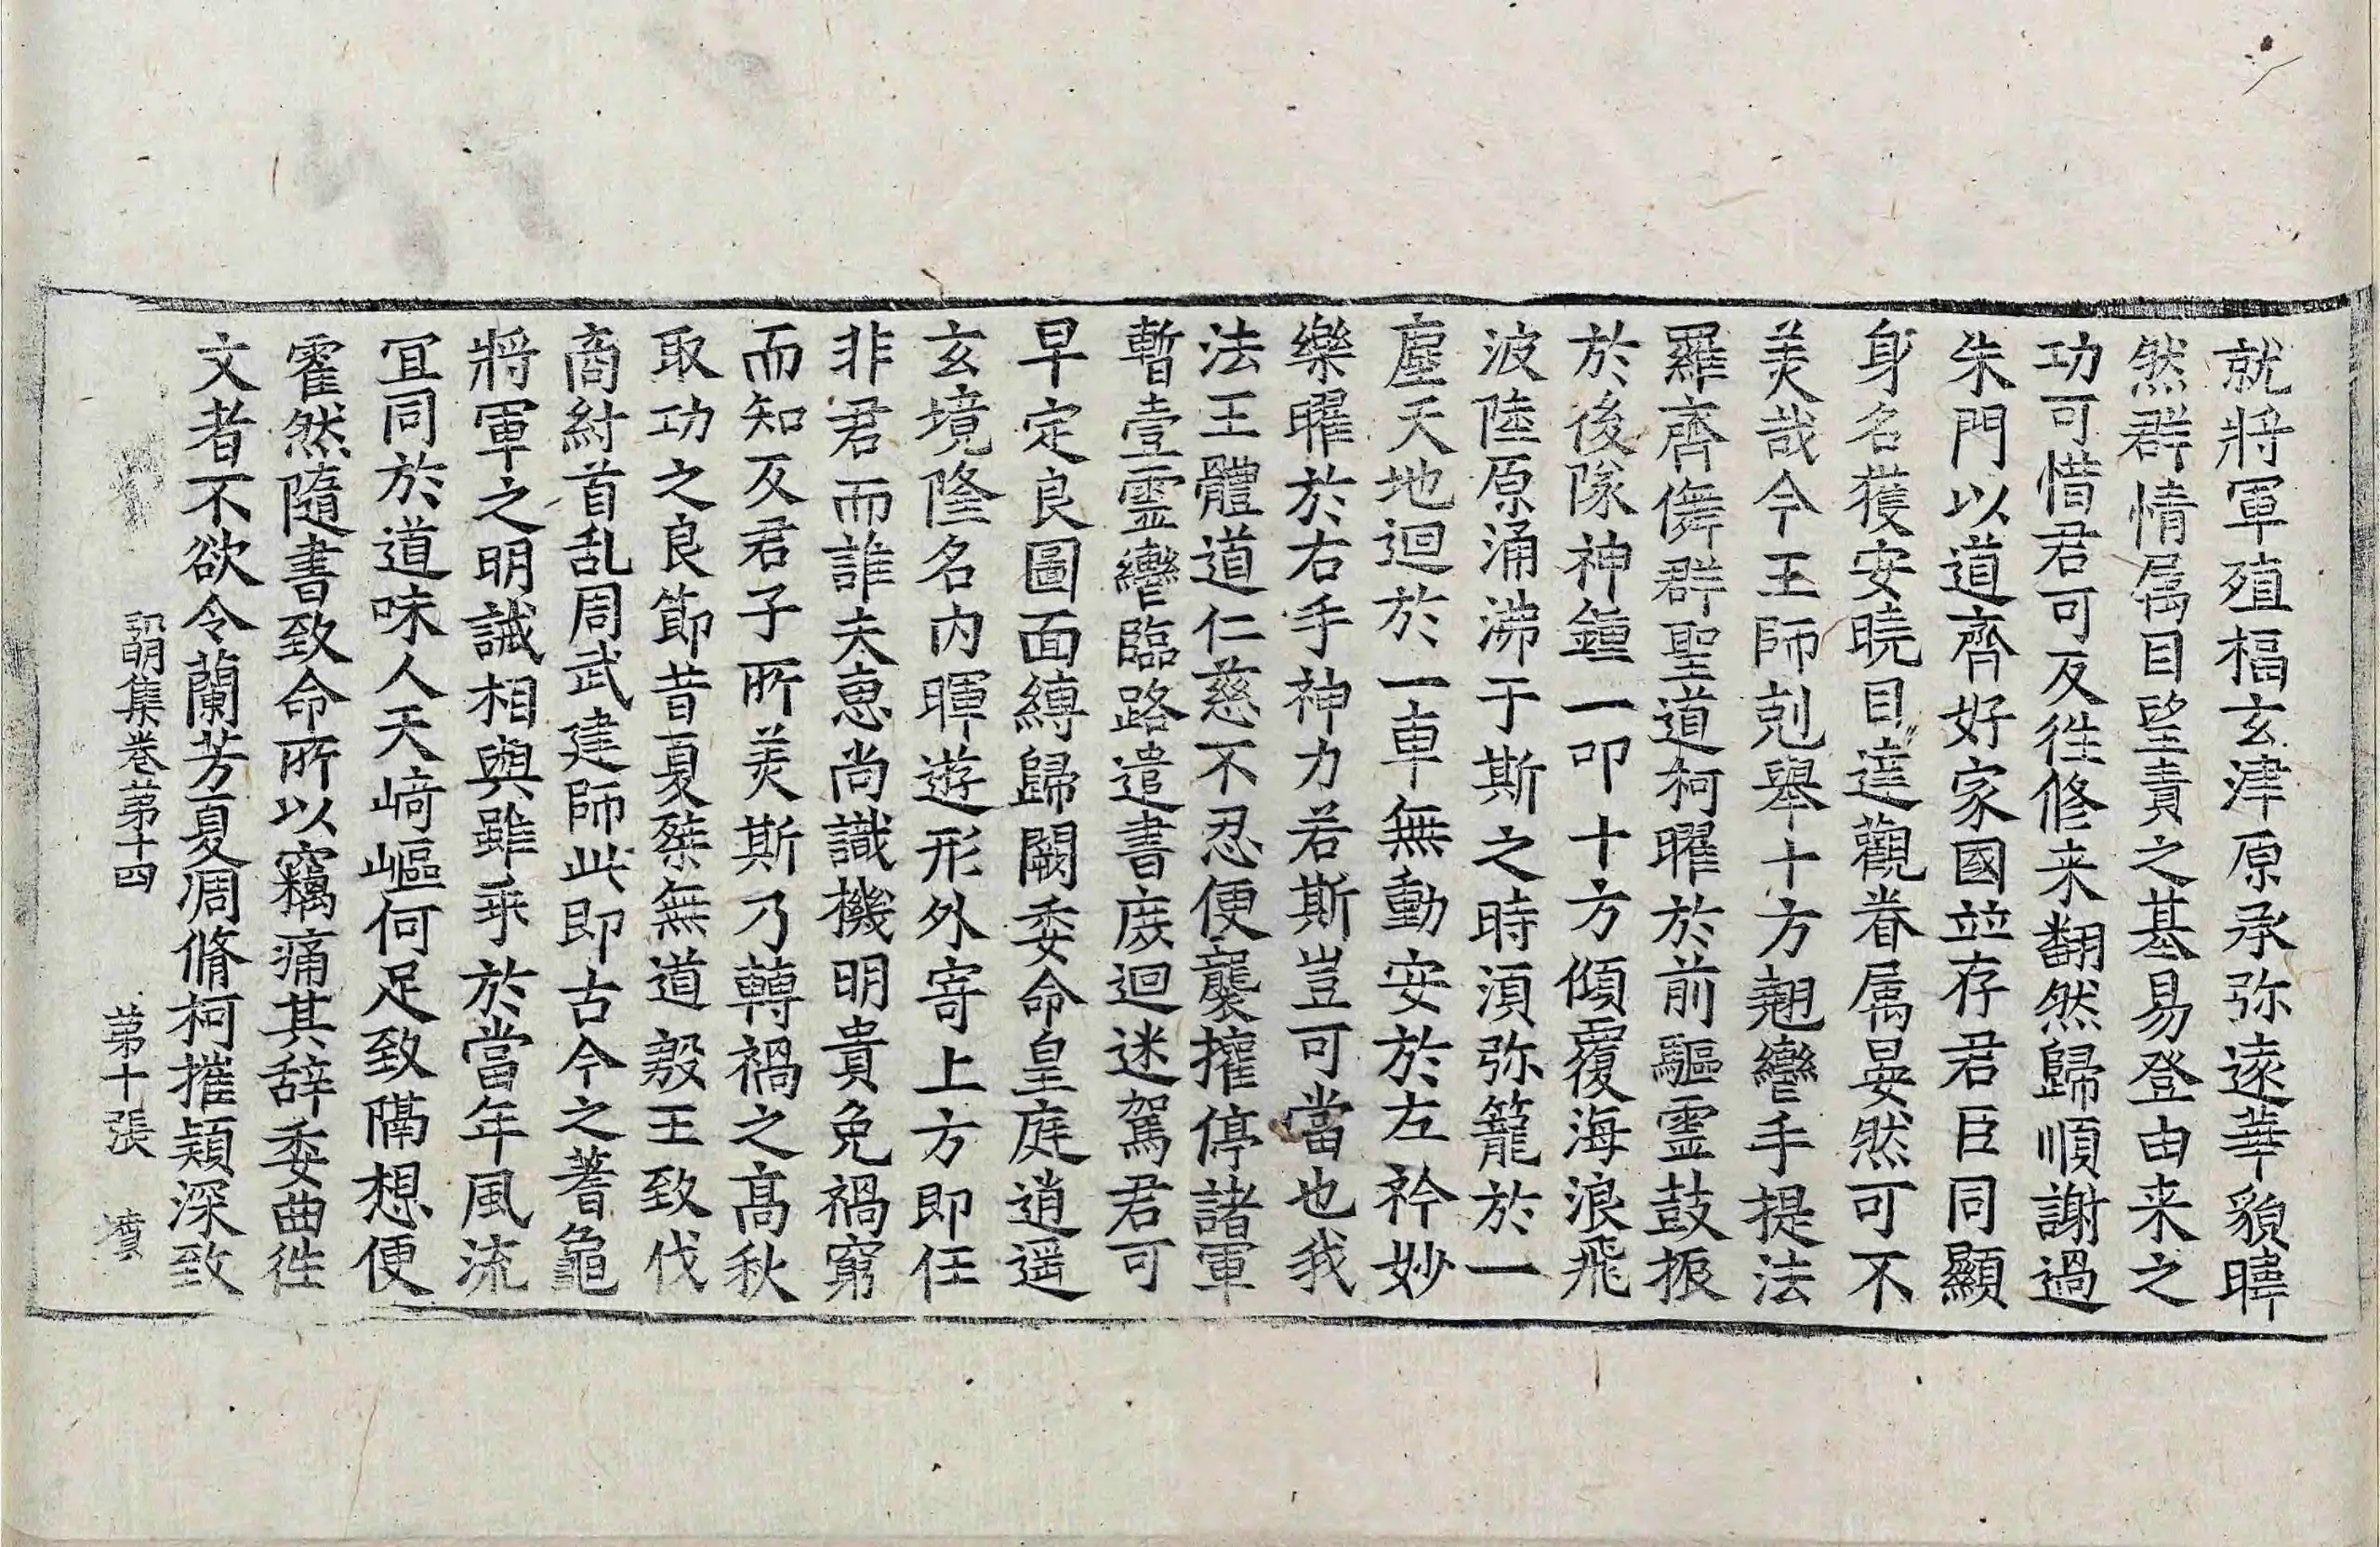 就將軍殖福玄津原承弥遠華貌暐
然群情属目望責之基易登由来之
功可惜君可反徃修来翻然歸順謝過
朱門以道齊好家國並存君臣同顯
身名獲安曉目達觀眷属晏然可不
美哉今王師剋舉十方翹轡手提法
羅齊儛群聖道柯曜於前驅霊鼓振
於後隊神鍾一叩十方傾覆海浪飛
波陸原涌沸于斯之時湏弥籠於一
塵天地迴於一車無動安於左衿妙
樂曜於右手神力若斯豈可當也我
法王體道仁慈不忍便襲攉停諸軍
暫壹霊轡臨路遣書庻迴迷駕君可
早定良圖面縛歸闕委命皇庭逍遥
玄境隆名内暉遊形外寄上方即任
非君而誰夫恵尚識機明貴免禍窮
而知反君子所美斯乃轉禍之高秋
取功之良節昔夏桀無道殷王致伐
商紂首乱周武建師此即古今之蓍龜
將軍之明誡相與雖乖於當年風流
冝同於道味人天﨑嶇何足致隔想便
霍然隨書致命所以竊痛其辞委曲徃
文者不欲令蘭芳夏凋脩柯摧穎深致
弘明集卷第十四　第十張